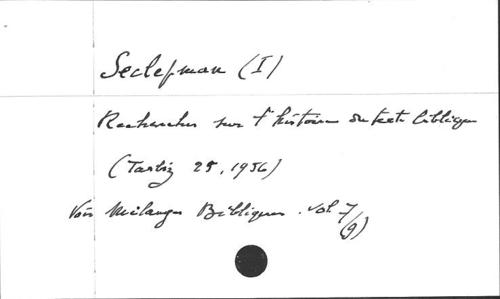 Seclefman (I)
Recherches sur l'histoire du texte biblique
(Tarbiz 25, 1956)
Voir Mélanges Bibliques. vol 7
(9)